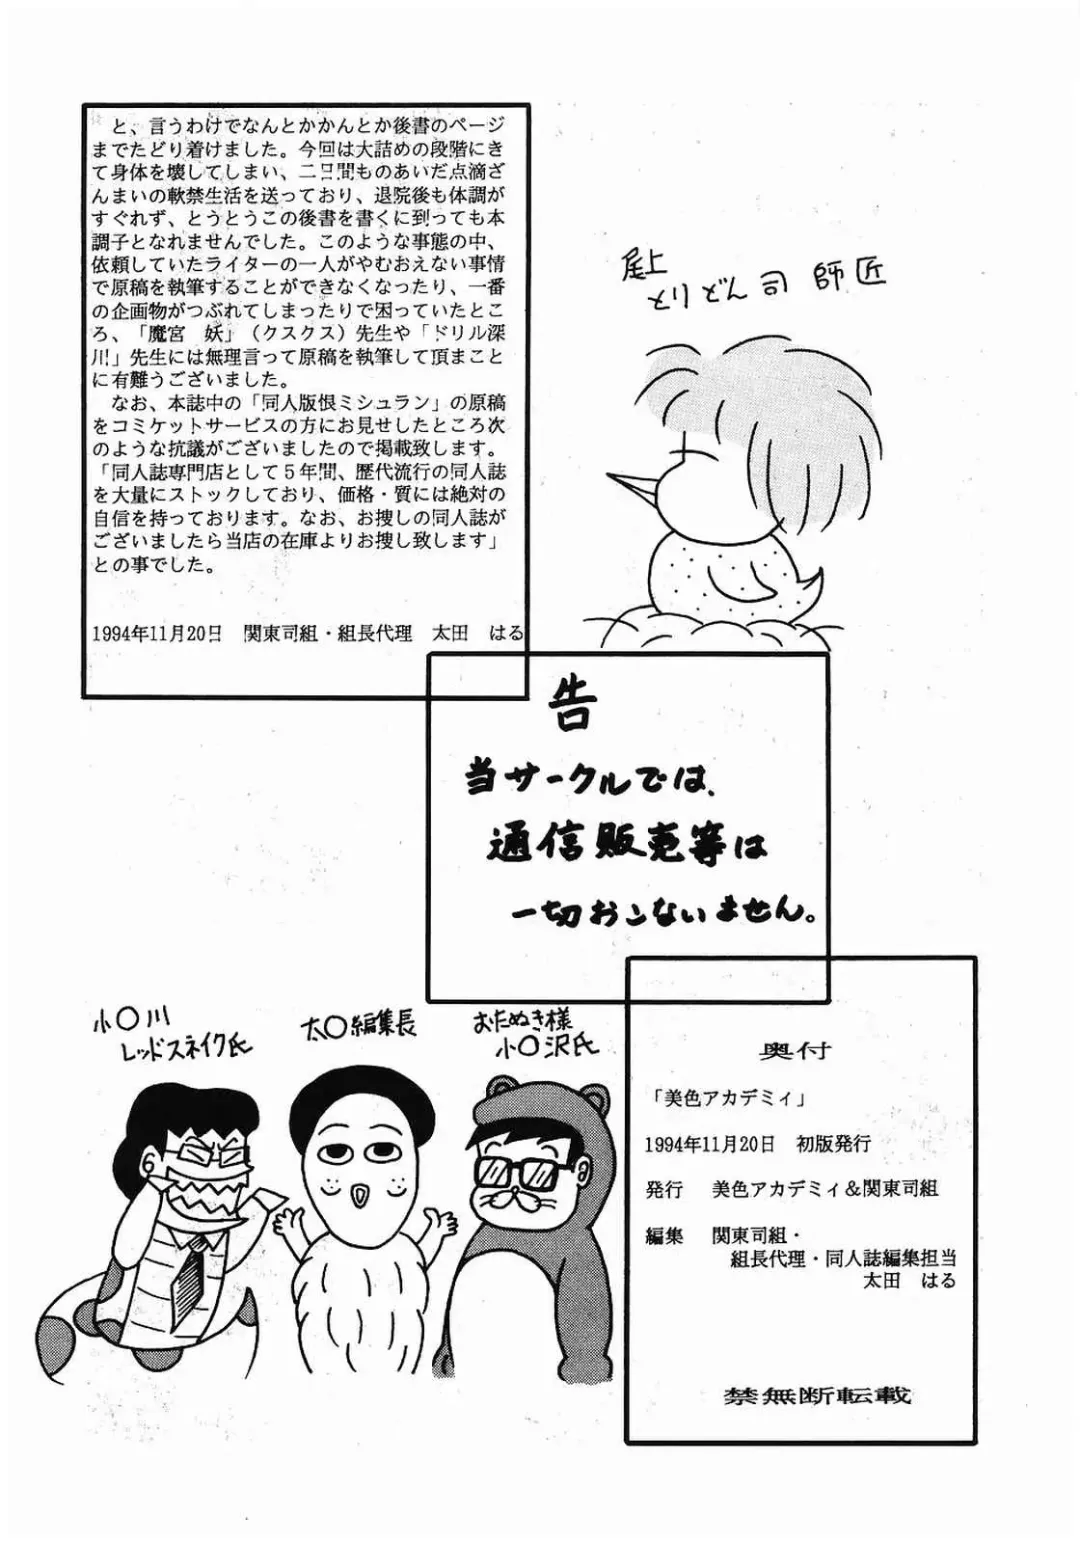 と、言うわけでなんとかかんとか後書のページ
までたどり着けました。今回は大詰めの段階にき
て身体を壊してしまい、二日間ものあいだ点滴ざ
んまいの軟禁生活を送っており、退院後も体調が
すぐれず、とうとうこの後書を書くに到っても本
調子となれませんでした。このような事態の中、
依頼していたライターの一人がやむおえない事情
で原稿を執筆することができなくなったり、一番
の企画物がつぶれてしまったりで困っていたとこ
ろ、「魔宮　妖」（クスクス）先生や「ドリル深
川」先生には無理言って原稿を執筆して頂まこと
に有難うございました。
なお、本誌中の「同人版恨ミシュラン」の原稿
をコミケットサービスの方にお見せしたところ次
のような抗議がございましたので掲載致します。
「同人誌専門店として５年間、歴代流行の同人誌
を大量にストックしており、価格・質には絶対の
自信を持っております。なお、お捜しの同人誌が
ございましたら当店の在庫よりお捜し致します」
との事でした。
1994年11月20日　関東司組・組長代理　太田　はる
尾上
とりどん司 師匠
告
当サークルでは、
通信販売等は
一切おこないません。
小〇川
レッドスネイク氏
太〇編集長
おたぬき様
小〇沢氏
奥付
「美色アカデミィ」
1994年11月20日　初版発行
発行　美色アカデミィ＆関東司組
編集　関東司組・
組長代理・同人誌編集担当
太田　はる
禁無断転載